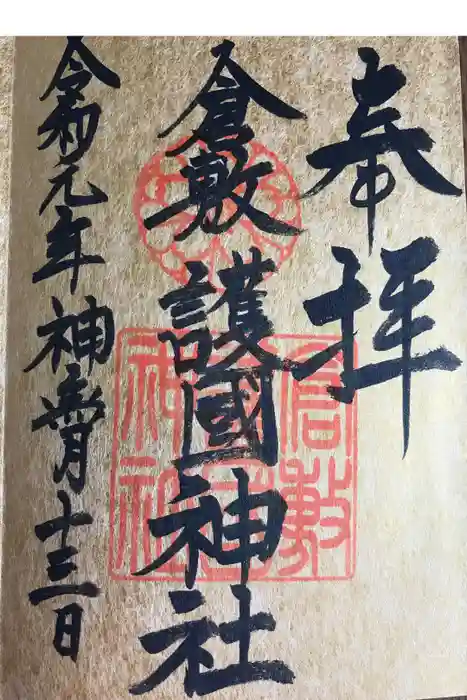 奉拝
倉敷護國神社
令和元年神無月十三日
倉敷
神社